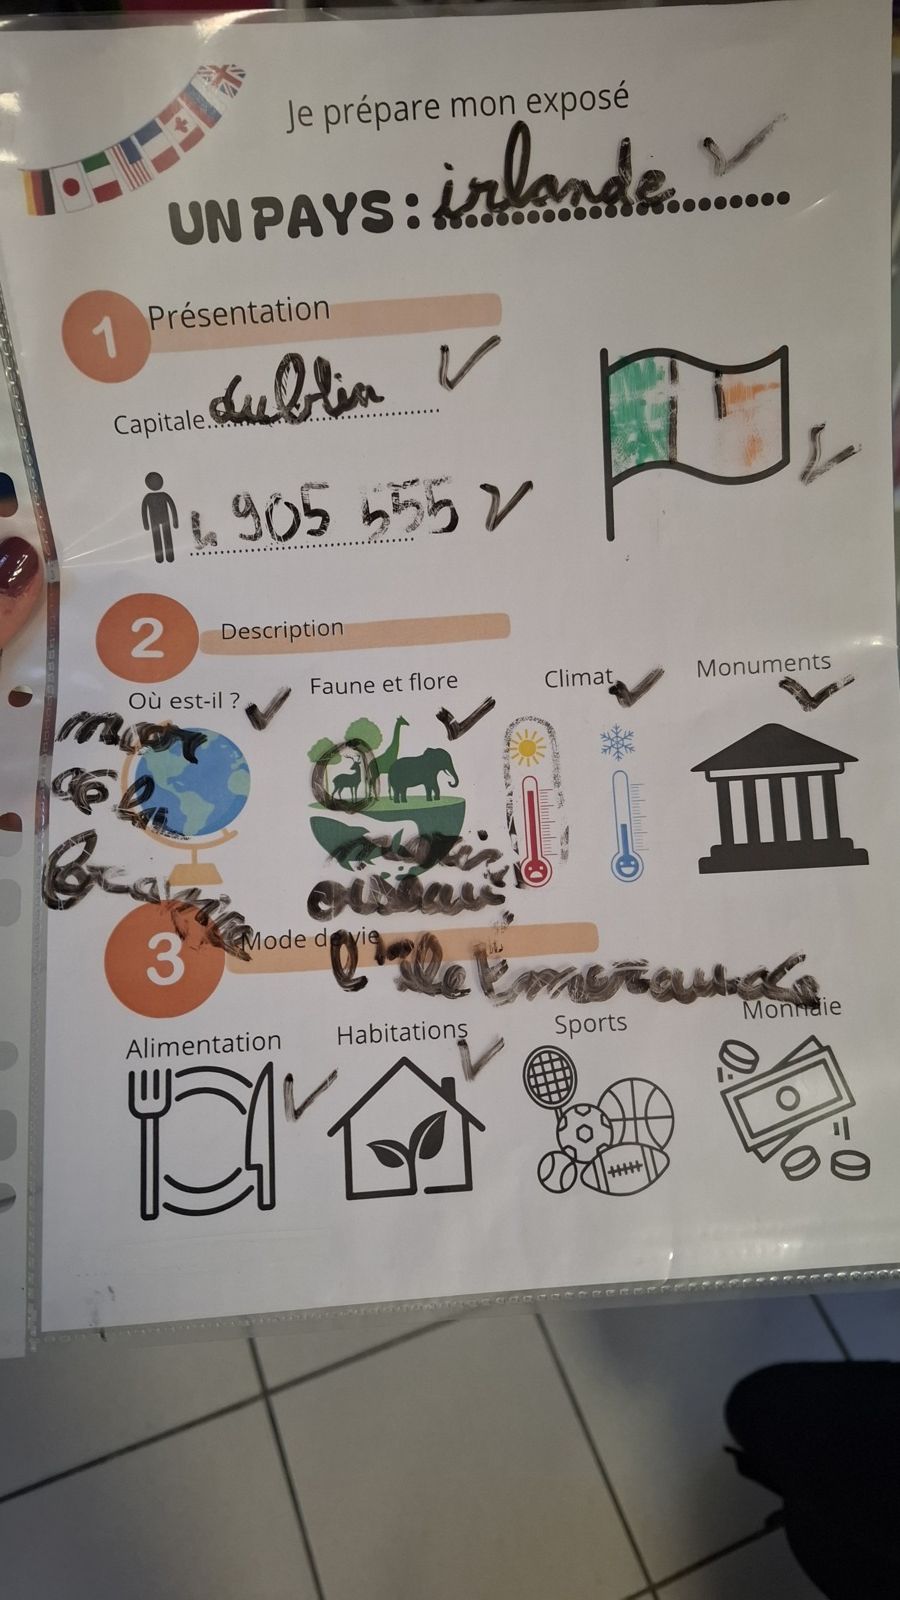 Je prépare mon exposé
UN PAYS : irlande
1 Présentation
Capitale dublin
4 905 555
2 Description
Où est-il ? Faune et flore Climat Monuments
oiseau
3 Mode de vie
l'île
Alimentation Habitations Sports Monnaie